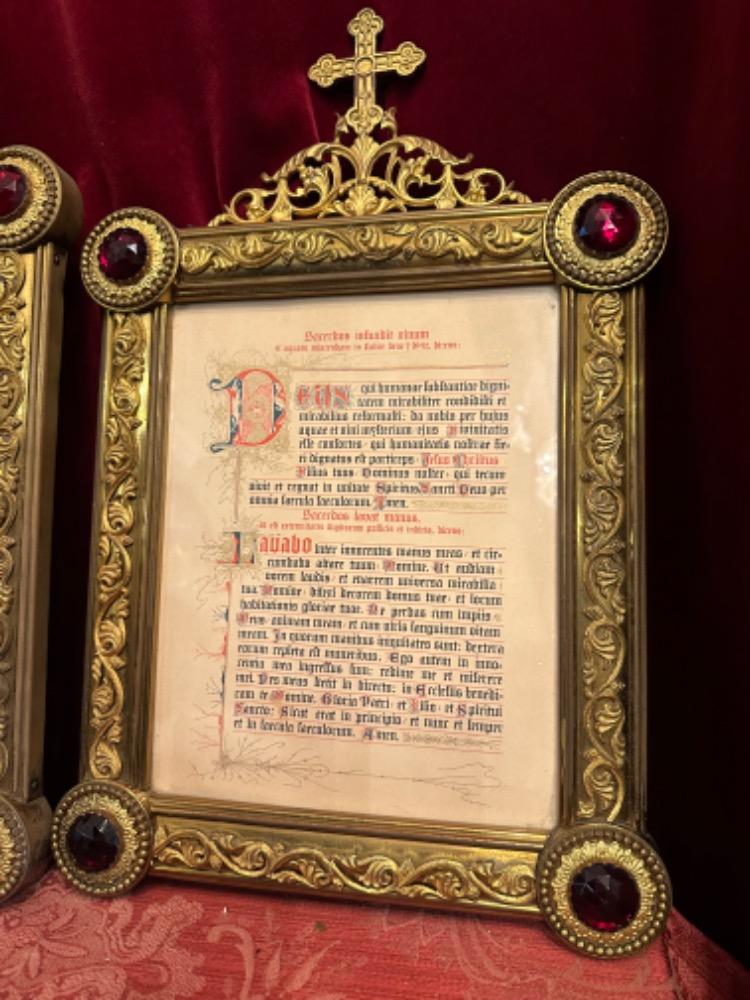 Sacerdos infundit vinum
et aquam miscendam in
Deus qui humanae substantiae digni-
tatem mirabiliter condidisti et
mirabilius reformasti: da nobis per hujus
aquae et vini mysterium ejus Divinitatis
esse consortes · qui humanitatis nostrae fie-
ri dignatus est particeps · Jesus Christus
Filius tuus · Dominus noster · qui tecum
vivit et regnat in unitate Spiritus Sancti Deus per
omnia saecula saeculorum. Amen.
Sacerdos lavat manus,
id est extremitates digitorum pollicis et indicis, dicens:
Lavabo inter innocentes manus meas · et cir-
cumdabo altare tuum: Domine. Ut audiam
vocem laudis · et enarrem universa mirabilia
tua. Domine · dilexi decorem domus tuae · et locum
habitationis gloriae tuae. Ne perdas cum impiis
Deus · animam meam · et cum viris sanguinum vitam
meam. In quorum manibus iniquitates sunt: dextera
eorum repleta est muneribus. Ego autem in inno-
centia mea ingressus sum: redime me et miserere
mei. Pes meus stetit in directo: in Ecclesiis benedi-
cam te Domine. Gloria Patri · et Filio · et Spiritui
Sancto: Sicut erat in principio · et nunc et semper
et in saecula saeculorum. Amen.